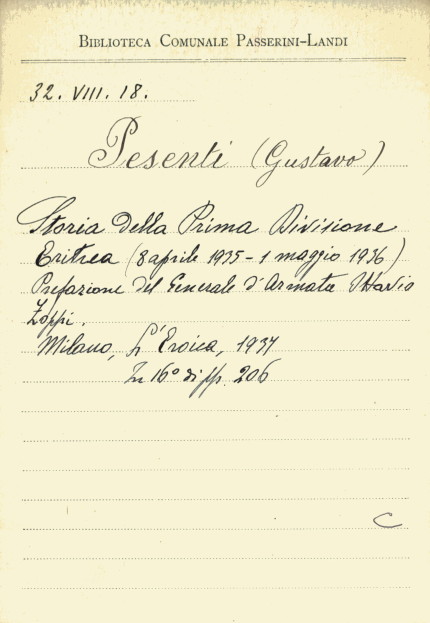 BIBLIOTECA COMUNALE PASSERINI-LANDI
32. VIII. 18.
Pesenti (Gustavo)
Storia della Prima Divisione
Eritrea (8 aprile 1935 - 1 maggio 1936)
Prefazione del Generale d'Armata Ottavio
Zoppi.
Milano, L'Eroica, 1937
In 16° di pp. 206
C